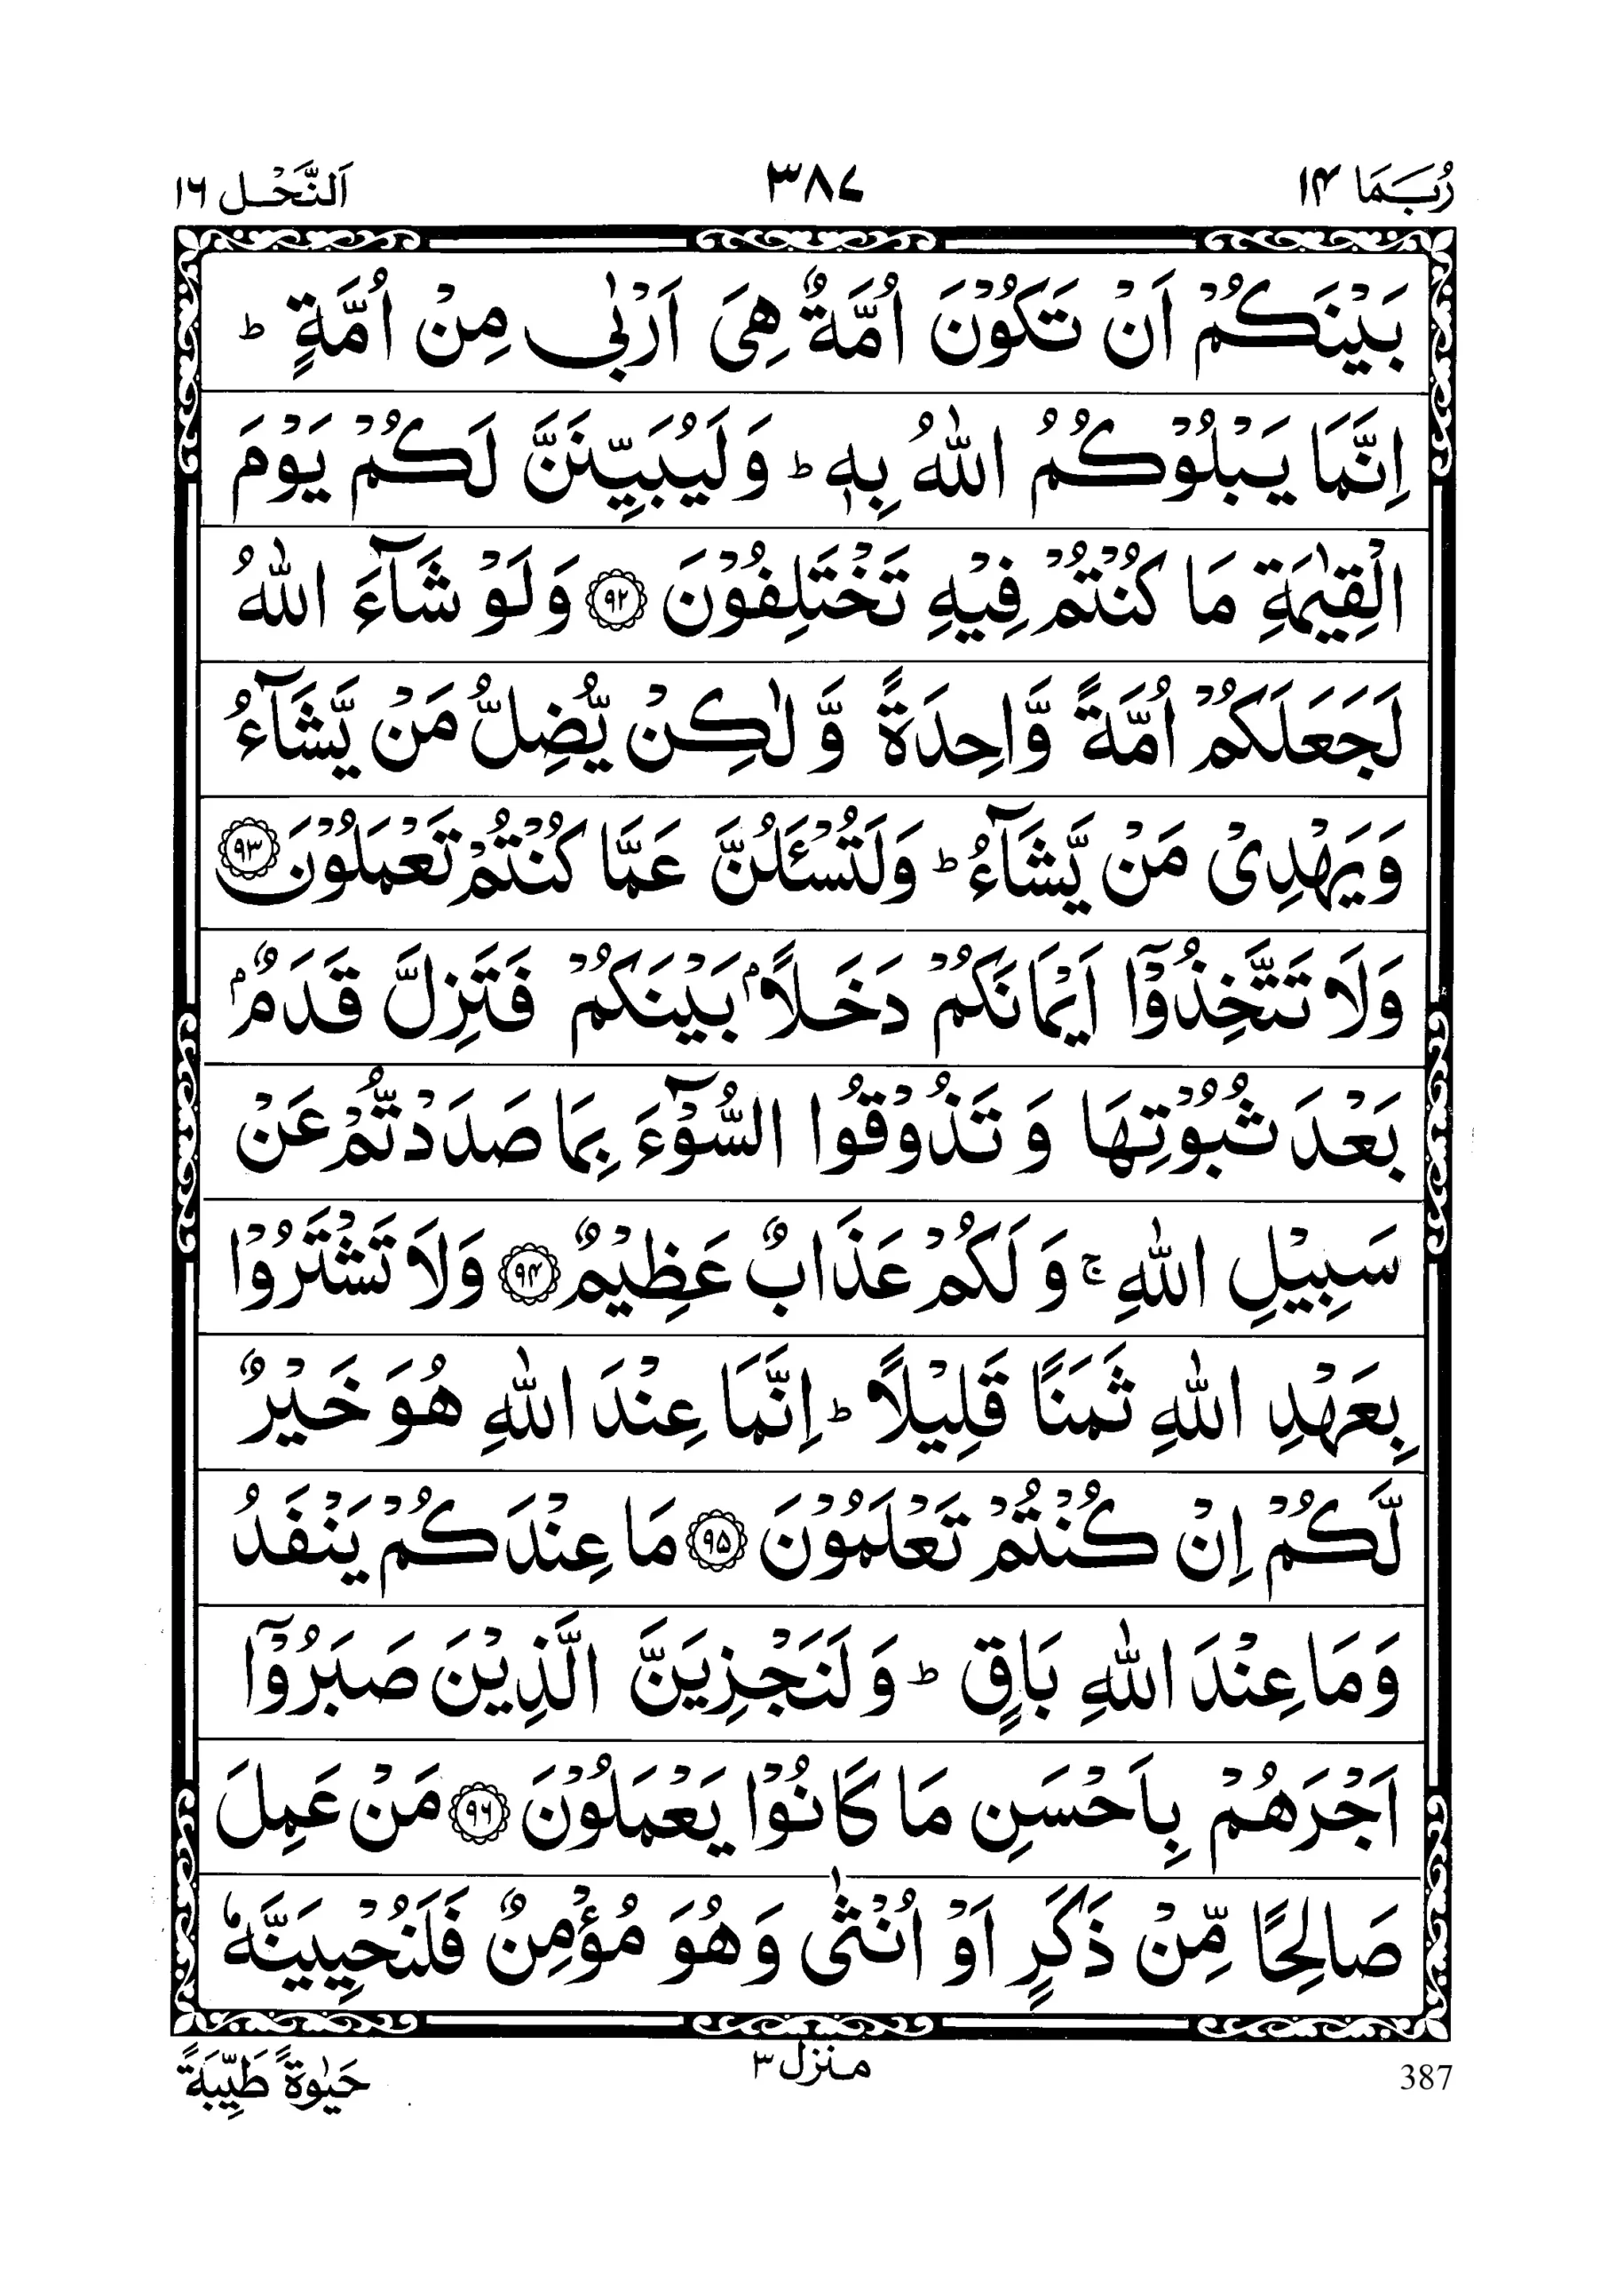 رُبَمَا ١۴ ٣٨٧ اَلنَّحْل ١٦
بَيْنَكُمْ اَنْ تَكُوْنَ اُمَّةٌ هِىَ اَرْبٰى مِنْ اُمَّةٍ ؕ
اِنَّمَا يَبْلُوْكُمُ اللّٰهُ بِهٖ ؕ وَلَيُبَيِّنَنَّ لَكُمْ يَوْمَ
الْقِيٰمَةِ مَا كُنْتُمْ فِيْهِ تَخْتَلِفُوْنَ ﴿۹۲﴾ وَلَوْ شَآءَ اللّٰهُ
لَجَعَلَكُمْ اُمَّةً وَّاحِدَةً وَّ لٰكِنْ يُّضِلُّ مَنْ يَّشَآءُ
وَيَهْدِىْ مَنْ يَّشَآءُ ؕ وَلَتُسْـَٔلُنَّ عَمَّا كُنْتُمْ تَعْمَلُوْنَ ﴿۹۳﴾
وَلَا تَتَّخِذُوْٓا اَيْمَانَكُمْ دَخَلًاۢ بَيْنَكُمْ فَتَزِلَّ قَدَمٌۢ
بَعْدَ ثُبُوْتِهَا وَ تَذُوْقُوا السُّوْٓءَ بِمَا صَدَدْتُّمْ عَنْ
سَبِيْلِ اللّٰهِ ۚ وَ لَكُمْ عَذَابٌ عَظِيْمٌ ﴿۹۴﴾ وَلَا تَشْتَرُوْا
بِعَهْدِ اللّٰهِ ثَمَنًا قَلِيْلًا ؕ اِنَّمَا عِنْدَ اللّٰهِ هُوَ خَيْرٌ
لَّكُمْ اِنْ كُنْتُمْ تَعْلَمُوْنَ ﴿۹۵﴾ مَا عِنْدَكُمْ يَنْفَدُ
وَمَا عِنْدَ اللّٰهِ بَاقٍ ؕ وَلَنَجْزِيَنَّ الَّذِيْنَ صَبَرُوْٓا
اَجْرَهُمْ بِاَحْسَنِ مَا كَانُوْا يَعْمَلُوْنَ ﴿۹۶﴾ مَنْ عَمِلَ
صَالِحًا مِّنْ ذَكَرٍ اَوْ اُنْثٰى وَهُوَ مُؤْمِنٌ فَلَنُحْيِيَنَّهٗ
387 منزل ٣ حَيٰوةً طَيِّبَةً